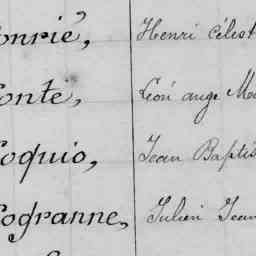 onrié, Henri célest
onte, Léon ange Ma
oquio, Jean Baptis
ogranne, Julien Jean